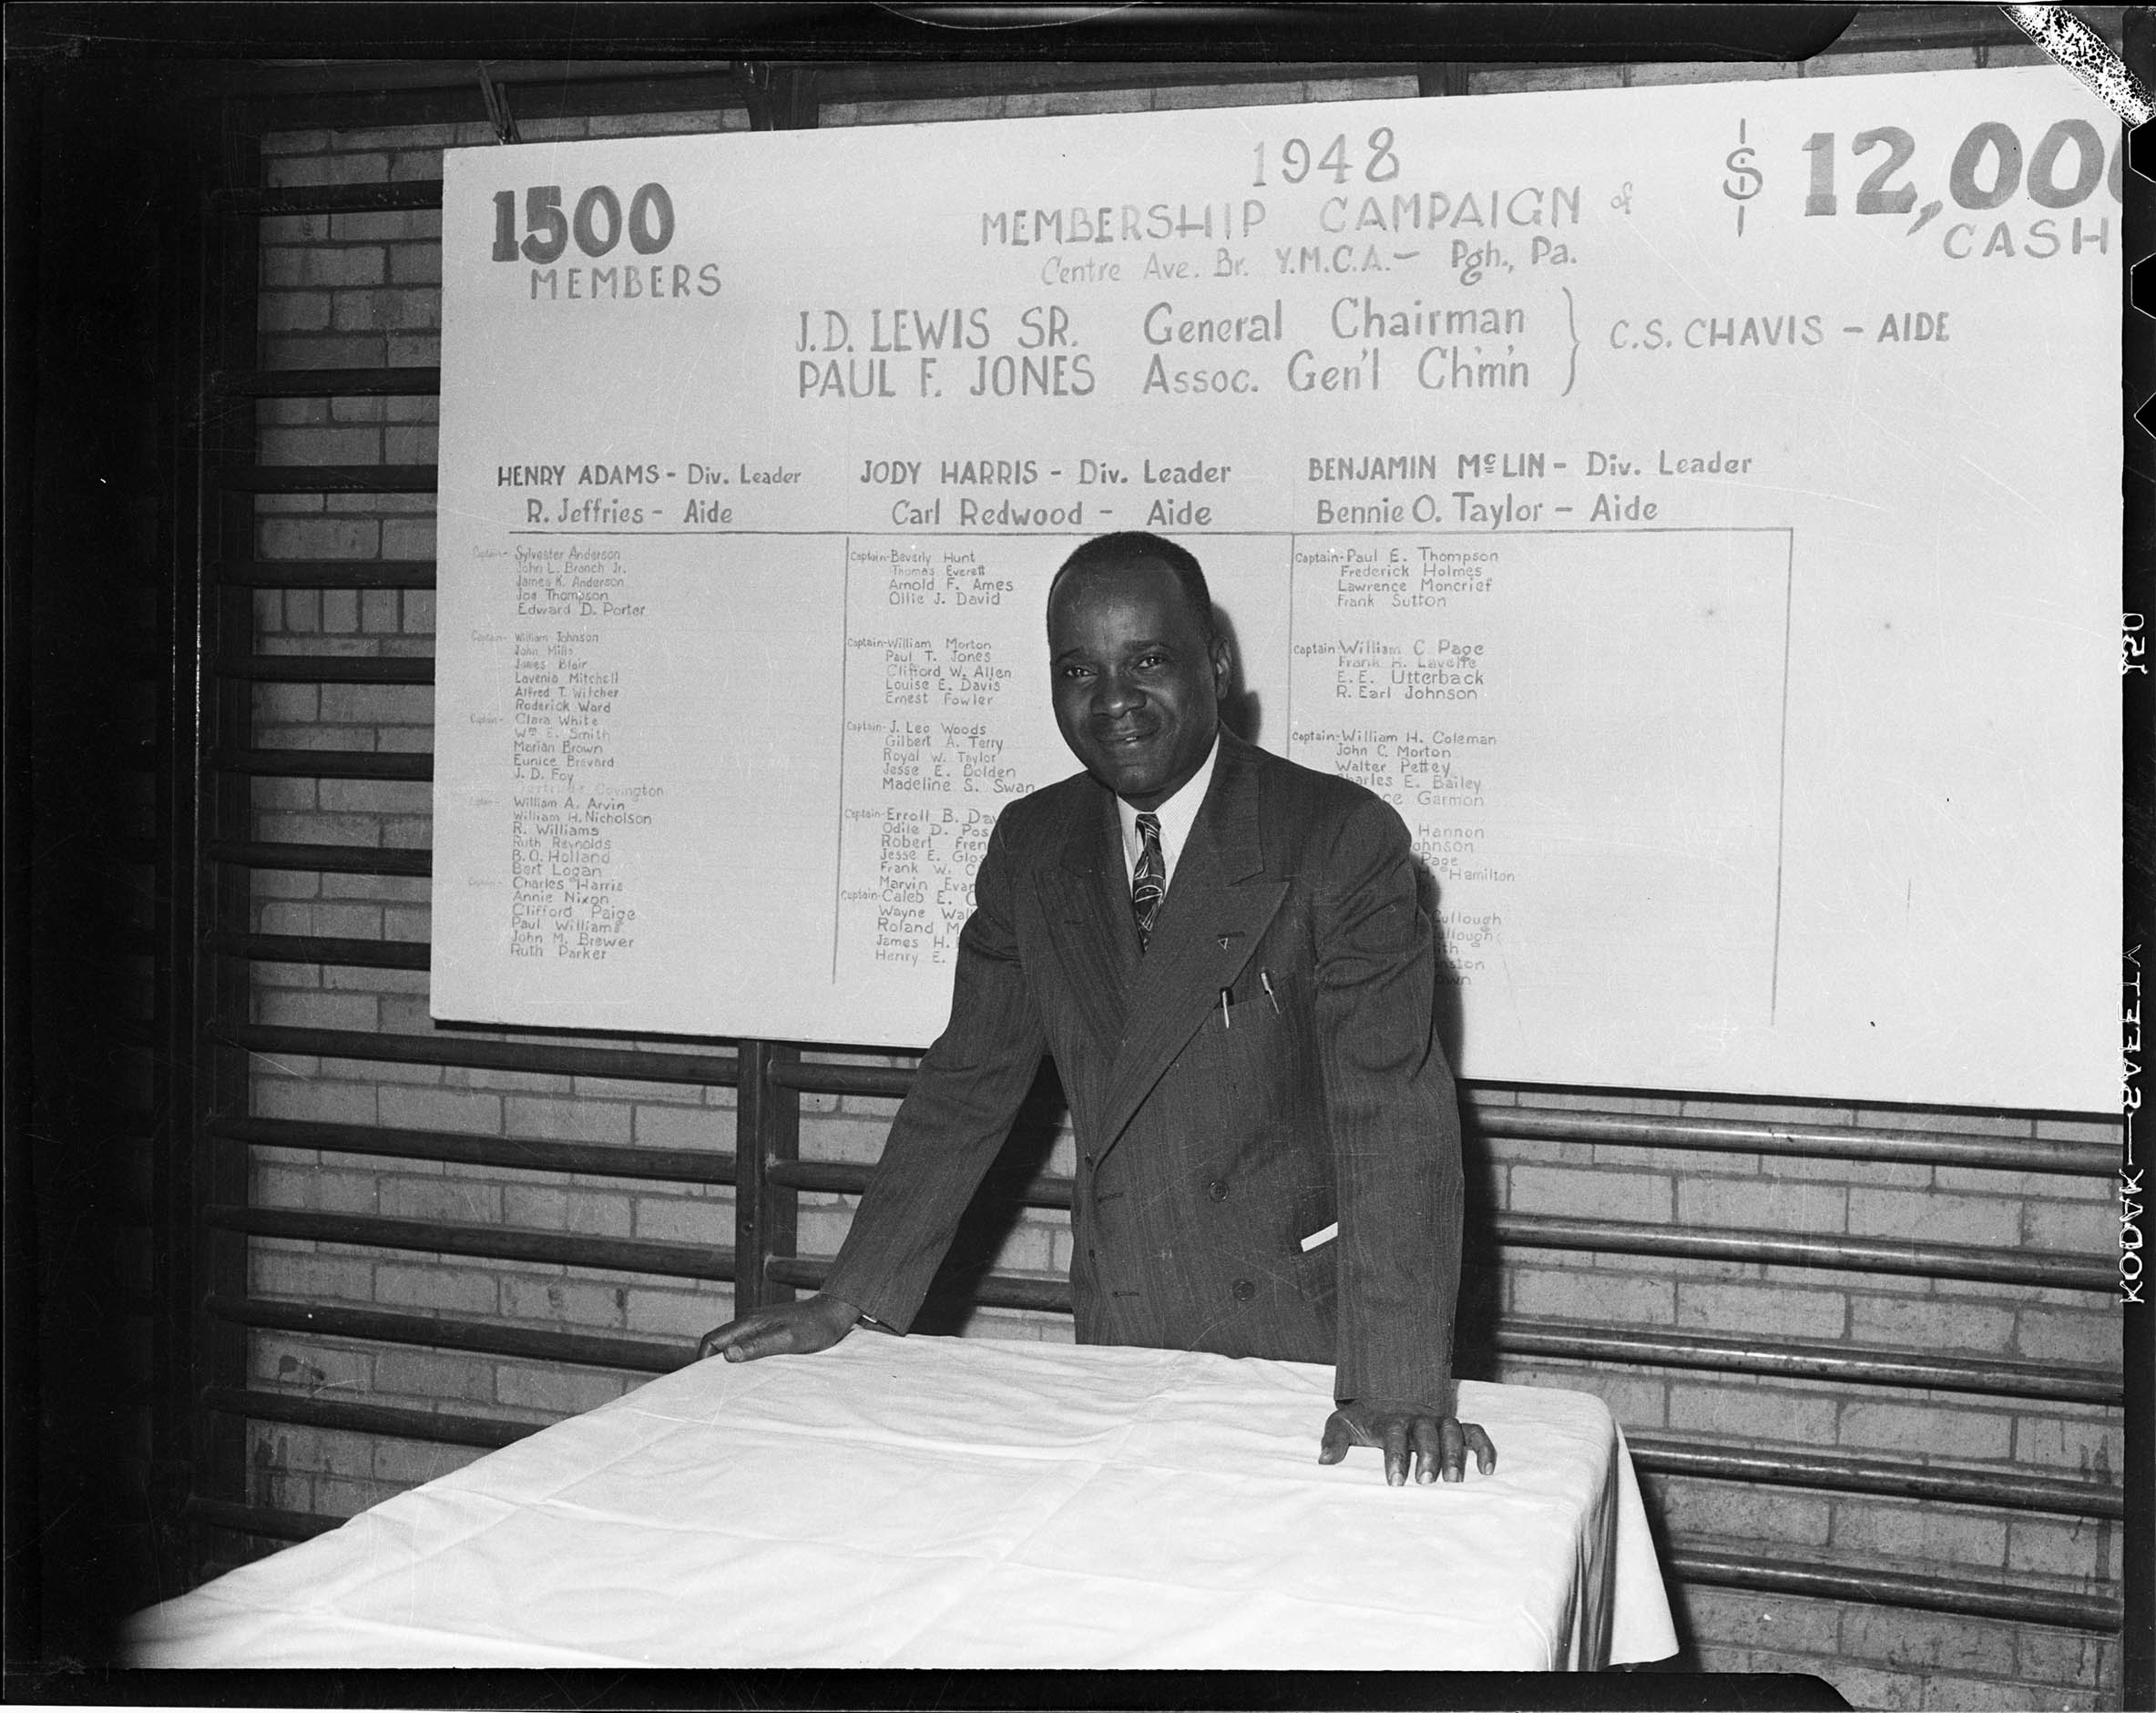 1948
1500
MEMBERS
MEMBERSHIP CAMPAIGN of
$ 12,00
CASH
Centre Ave. Br. Y.M.C.A.— Pgh., Pa.
J.D. LEWIS SR. General Chairman
PAUL F. JONES Assoc. Gen'l Ch'm'n
C.S. CHAVIS - AIDE
HENRY ADAMS - Div. Leader
R. Jeffries - Aide
Captain- Sylvester Anderson
John L. Branch Jr.
James K. Anderson
Joe Thompson
Edward D. Porter
Captain- William Johnson
John Mills
James Blair
Lavenia Mitchell
Alfred T. Witcher
Roderick Ward
Captain- Clara White
Wm E. Smith
Marian Brown
Eunice Brevard
J. D. Foy
Covington
William A. Arvin
William H. Nicholson
R. Williams
Ruth Reynolds
B.O. Holland
Bert Logan
Captain- Charles Harris
Annie Nixon
Clifford Paige
Paul Williams
John M. Brewer
Ruth Parker
JODY HARRIS - Div. Leader
Carl Redwood - Aide
Captain-Beverly Hunt
Thomas Everett
Arnold F. Ames
Ollie J. David
Captain-William Morton
Paul T. Jones
Clifford W. Allen
Louise E. Davis
Ernest Fowler
Captain-J. Leo Woods
Gilbert A. Terry
Royal W. Taylor
Jesse E. Bolden
Madeline S. Swan
Captain-Erroll B. Da
Odile D. Pos
Robert Fren
Jesse E. Glos
Frank W. C
Marvin Evan
Captain-Caleb E. C
Wayne Wal
Roland M
James H.
Henry E.
BENJAMIN McLIN - Div. Leader
Bennie O. Taylor - Aide
Captain-Paul E. Thompson
Frederick Holmes
Lawrence Moncrief
Frank Sutton
Captain-William C. Page
Frank R. Lavelle
E.E. Utterback
R. Earl Johnson
Captain-William H. Coleman
John C. Morton
Walter Pettey
harles E. Bailey
ce Garmon
Hannon
ohnson
Page
Hamilton
Cullough
llough
th
ston
wn
KODAK—SAFETY